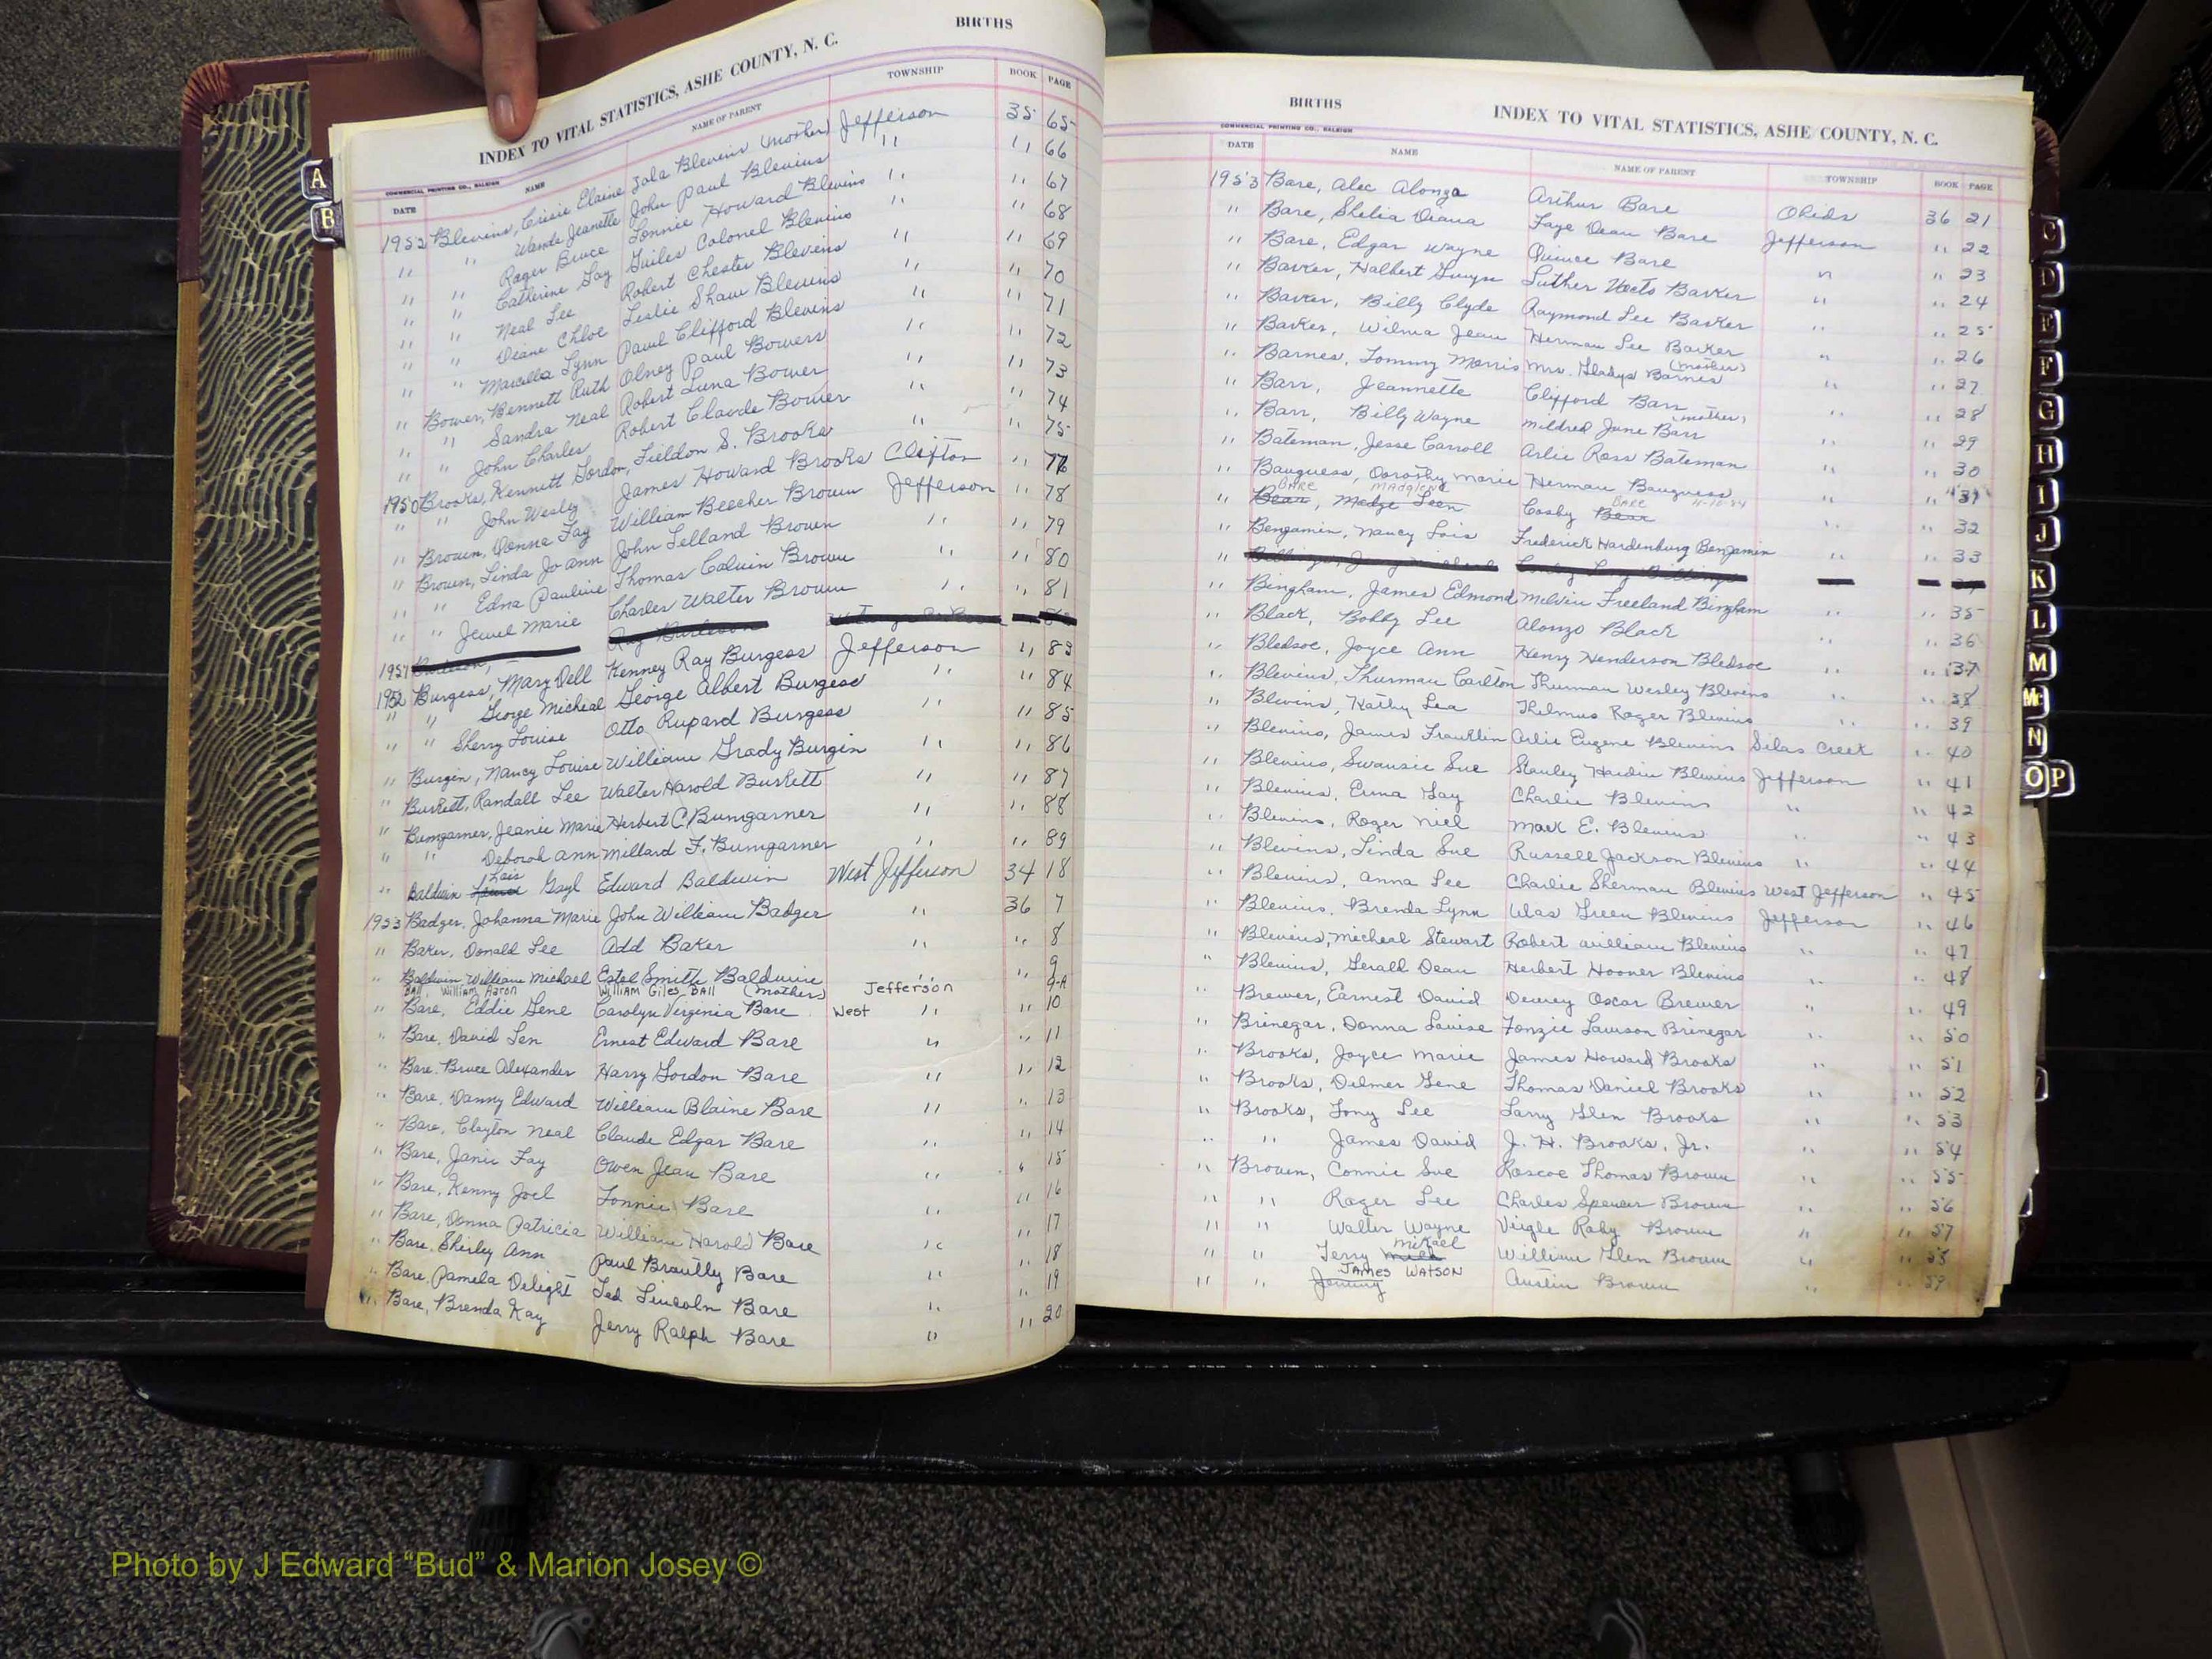 BIRTHS
INDEX TO VITAL STATISTICS, ASHE COUNTY, N. C.
COMMERCIAL PRINTING CO., RALEIGH
DATE NAME NAME OF PARENT TOWNSHIP BOOK PAGE
A
B
1952 Blevins, Crisie Elaine Zala Blevins (Mother) Jefferson 35 65
" " Wanda Jeanette John Paul Blevins " " 66
" " Roger Bruce Lonnie Howard Blevins " " 67
" " Catherine Gay Guiles Colonel Blevins " " 68
" " Neal Lee Robert Chester Blevins " " 69
" " Diane Chloe Leslie Shaw Blevins " " 70
" " Marcella Lynn Paul Clifford Blevins " " 71
" Bower, Bennett Ruth Olney Paul Bowers " " 72
" " Sandra Neal Robert Luna Bower " " 73
" " John Charles Robert Claude Bower " " 74
1950 Brooks, Kennett Gordon, Fieldon S. Brooks " " 75
" " John Wesley James Howard Brooks Clifton " 77
" Brown, Donna Fay William Beecher Brown Jefferson " 78
" Brown, Linda Jo ann John Lelland Brown " " 79
" " Edna Pauline Thomas Calvin Brown " " 80
" " Jewel Marie Charles Walter Brown " " 81
1951 Ray Burleson
1952 Burgess, Mary Dell Kenney Ray Burgess Jefferson " 83
" " George Micheal George Albert Burgess " " 84
" " Sherry Louise Otto Rupard Burgess " " 85
" Burgin, Nancy Louise William Grady Burgin " " 86
" Burkett, Randall Lee Walter Harold Burkett " " 87
" Bumgarner, Jeanie Marie Herbert C. Bumgarner " " 88
" " Deborah Ann Millard F. Bumgarner " " 89
" Baldwin Lois Gayl Edward Baldwin West Jefferson 34 18
1953 Badger, Johanna Marie John William Badger " 36 7
" Baker, Donald Lee Add Baker " " 8
" Baldwin William Michael Estel Smith Baldwin " " 9
BALL, William Aaron William Giles BALL Jefferson 9-A
" Bare, Eddie Gene Carolyn Virginia Bare (Mother) West " " 10
" Bare, David Len Ernest Edward Bare " " 11
" Bare, Bruce Alexander Harry Gordon Bare " " 12
" Bare, Danny Edward William Blaine Bare " " 13
" Bare, Clayton Neal Claude Edgar Bare " " 14
" Bare, Janie Fay Owen Jean Bare " " 15
" Bare, Kenny Joel Lonnie Bare " " 16
" Bare, Donna Patricia William Harold Bare " " 17
" Bare, Shirley Ann Paul Brantly Bare " " 18
" Bare, Pamela Delight Ted Lincoln Bare " " 19
" Bare, Brenda Kay Jerry Ralph Bare " " 20
BIRTHS
INDEX TO VITAL STATISTICS, ASHE COUNTY, N. C.
COMMERCIAL PRINTING CO., RALEIGH
DATE NAME NAME OF PARENT TOWNSHIP BOOK PAGE
1953 Bare, Alec Alonza Arthur Bare Obids 36 21
" Bare, Shelia Diana Faye Dean Bare Jefferson " 22
" Bare, Edgar Wayne Quince Bare " " 23
" Barker, Halbert Gwyn Luther Barker " " 24
" Barker, Billy Clyde Raymond Lee Barker " " 25
" Barker, Wilma Jean Herman Lee Barker " " 26
" Barnes, Tommy Morris Mrs. Gladys Barnes (Mother) " " 27
" Barr, Jeannette Clifford Barr " " 28
" Barr, Billy Wayne Mildred June Barr (Mother) " " 29
" Bateman, Jesse Carroll Arlie Ross Bateman " " 30
" Bauguess, Dorothy Marie Herman Bauguess " " 31
BARE MADGLENE BARE
" Bear, Madge Leen Cosby Bear " " 32
" Benjamin, Nancy Lois Frederick Hardenburg Benjamin " " 33
" Bingham, James Edmond Melvin Freeland Bingham " " 35
" Black, Bobby Lee Alonzo Black " " 36
" Bledsoe, Joyce Ann Henry Henderson Bledsoe " " 37
" Blevins, Thurman Carlton Thurman Wesley Blevins " " 38
" Blevins, Kathy Lea Thelmus Roger Blevins " " 39
" Blevins, James Franklin Arlie Eugene Blevins Silas Creek " 40
" Blevins, Swansie Sue Stanley Hardin Blevins Jefferson " 41
" Blevins, Erma Gay Charlie Blevins " " 42
" Blevins, Roger Niel Mark E. Blevins " " 43
" Blevins, Linda Sue Russell Jackson Blevins " " 44
" Blevins, Anna Lee Charlie Sherman Blevins West Jefferson " 45
" Blevins, Brenda Lynn Was Green Blevins Jefferson " 46
" Blevins, Micheal Stewart Robert William Blevins " " 47
" Blevins, Gerald Dean Herbert Hoover Blevins " " 48
" Brewer, Earnest David Dewey Oscar Brewer " " 49
" Brinegar, Donna Louise Fonzie Lawson Brinegar " " 50
" Brooks, Joyce Marie James Howard Brooks " " 51
" Brooks, Delmer Gene Thomas Daniel Brooks " " 52
" Brooks, Tony Lee Larry Glen Brooks " " 53
" " James David J. H. Brooks, Jr. " " 54
" Brown, Connie Sue Roscoe Thomas Brown " " 55
" " Roger Lee Charles Spencer Brown " " 56
" " Walter Wayne Virgle Raby Brown " " 57
" " Terry Mikael William Glen Brown " " 58
JAMES WATSON
" " Jimmy Austin Brown " " 59
C
D
E
F
G
H
I
J
K
L
M
Mc
N
O P
Photo by J Edward “Bud” & Marion Josey ©